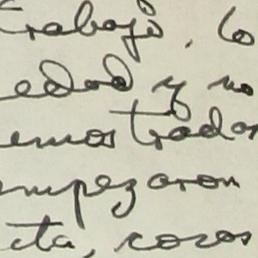 trabajo, lo
edad y no
emos trados
empezaron
cta, cosas